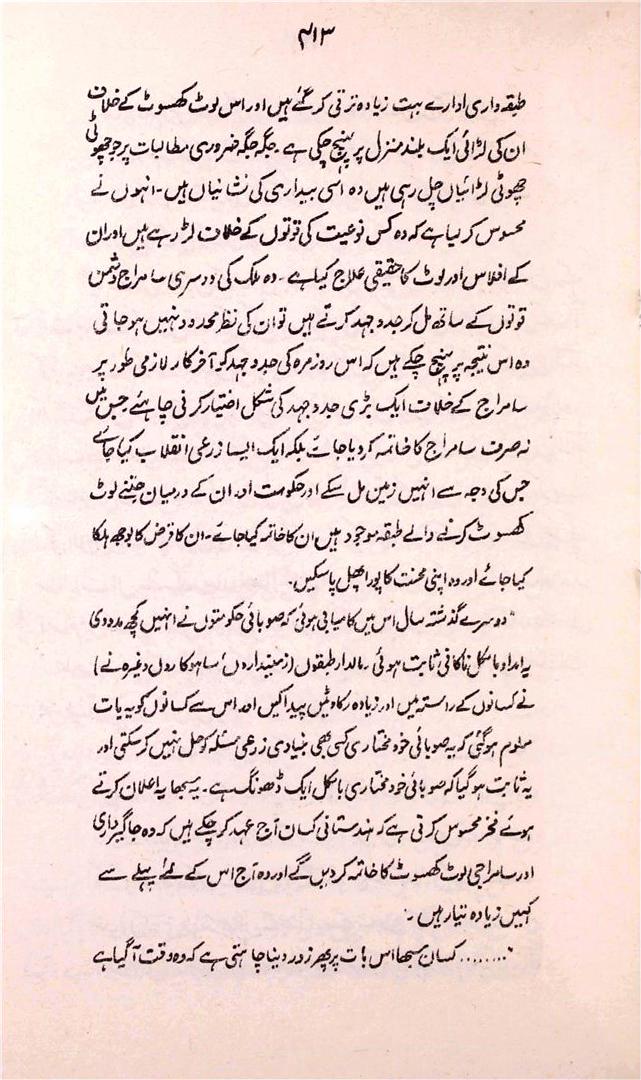 ۴۱۳
طبقہ داری ادارے بہت زیادہ ترقی کر گئے ہیں اور اس لوٹ کھسوٹ کے خلاف
ان کی لڑائی ایک بلند منزل پر پہنچ چکی ہے ۔ جگہ جگہ ضروری مطالبات پر جو چھوٹی
چھوٹی لڑائیاں چل رہی ہیں وہ اسی بیداری کی نشانیاں ہیں ۔ انہوں نے
محسوس کر لیا ہے کہ وہ کس نوعیت کی قوتوں کے خلاف لڑ رہے ہیں اور ان
کے افلاس اور لوٹ کا حقیقی علاج کیا ہے ۔ وہ ملک کی دوسری سامراج دشمن
قوتوں کے ساتھ مل کر جدوجہد کرتے ہیں تو ان کی نظر محدود نہیں ہو جاتی
وہ اس نتیجہ پر پہنچ چکے ہیں کہ اس روزمرہ کی جدوجہد کو آخر کار لازمی طور پر
سامراج کے خلاف ایک بڑی جدوجہد کی شکل اختیار کرنی چاہئے جس میں
نہ صرف سامراج کا خاتمہ کر دیا جائے بلکہ ایک ایسا زرعی انقلاب کیا جائے
جس کی وجہ سے انہیں زمین مل سکے اور حکومت اور ان کے درمیان جتنے لوٹ
کھسوٹ کرنے والے طبقہ موجود ہیں ان کا خاتمہ کیا جائے ۔ ان کا قرض کا بوجھ ہلکا
کیا جائے اور وہ اپنی محنت کا پورا پھل پا سکیں ۔
"دوسرے گذشتہ سال اس میں کامیابی ہوئی کہ صوبائی حکومتوں نے انہیں کچھ مدد دی
یہ امداد بالکل ناکافی ثابت ہوئی ۔ مالدار طبقوں (زمینداروں، ساہوکاروں وغیرہ نے)
نے کسانوں کے راستہ میں اور زیادہ رکاوٹیں پیدا کیں اور اس سے کسانوں کو یہ بات
معلوم ہو گئی کہ یہ صوبائی خود مختاری کسی بھی بنیادی زرعی مسئلہ کو حل نہیں کر سکتی اور
یہ ثابت ہو گیا کہ صوبائی خود مختاری بالکل ایک ڈھونگ ہے ۔ یہ سبھا یہ اعلان کرتے
ہوئے فخر محسوس کرتی ہے کہ ہندستانی کسان آج عہد کر چکے ہیں کہ وہ جاگیرداری
اور سامراجی لوٹ کھسوٹ کا خاتمہ کر دیں گے اور وہ آج اس کے لئے پہلے سے
کہیں زیادہ تیار ہیں ۔
"........ کسان سبھا اس بات پر پھر زور دینا چاہتی ہے کہ وہ وقت آگیا ہے